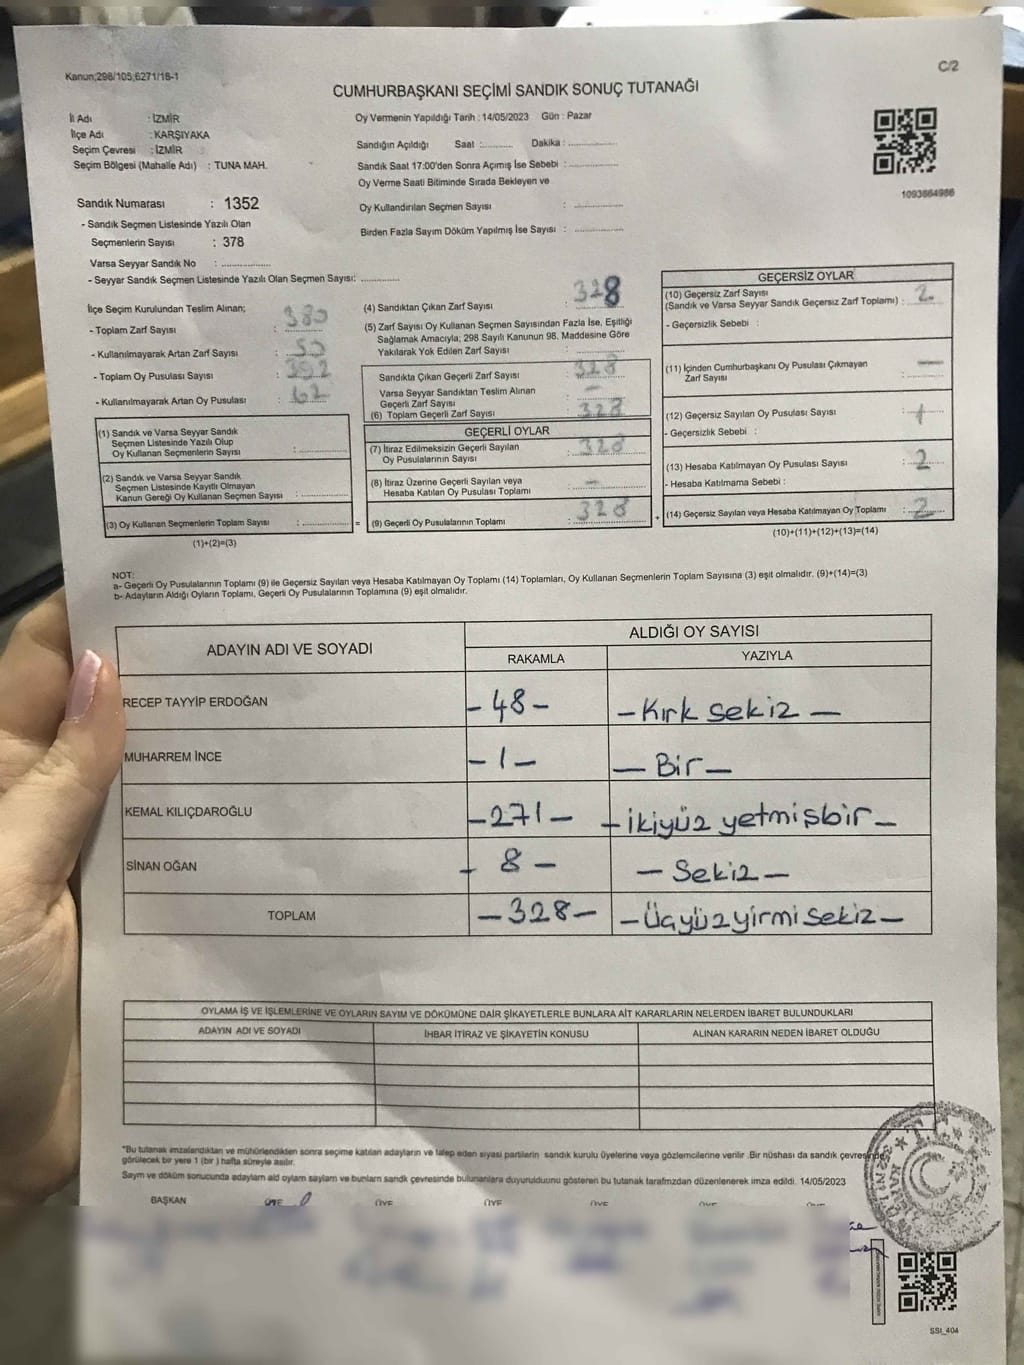 Kanun;298/105;6271/18-1
C/2
CUMHURBAŞKANI SEÇİMİ SANDIK SONUÇ TUTANAĞI
İl Adı : İZMİR
İlçe Adı : KARŞIYAKA
Seçim Çevresi : İZMİR
Seçim Bölgesi (Mahalle Adı) : TUNA MAH.
Oy Vermenin Yapıldığı Tarih : 14/05/2023 Gün : Pazar
Sandığın Açıldığı Saat :............ Dakika :................
Sandık Saat 17:00'den Sonra Açımış İse Sebebi :................
Oy Verme Saati Bitiminde Sırada Bekleyen ve
Oy Kullandırılan Seçmen Sayısı : ................
Birden Fazla Sayım Döküm Yapılmış İse Sayısı : ................
1093864986
Sandık Numarası : 1352
- Sandık Seçmen Listesinde Yazılı Olan
Seçmenlerin Sayısı : 378
Varsa Seyyar Sandık No : ................
- Seyyar Sandık Seçmen Listesinde Yazılı Olan Seçmen Sayısı: ............
İlçe Seçim Kurulundan Teslim Alınan;
- Toplam Zarf Sayısı : 380
- Kullanılmayarak Artan Zarf Sayısı : 50
- Toplam Oy Pusulası Sayısı : 392
- Kullanılmayarak Artan Oy Pusulası : 62
(1) Sandık ve Varsa Seyyar Sandık
Seçmen Listesinde Yazılı Olup
Oy Kullanan Seçmenlerin Sayısı : ................
(2) Sandık ve Varsa Seyyar Sandık
Seçmen Listesinde Kayıtlı Olmayan
Kanun Gereği Oy Kullanan Seçmen Sayısı : ................
(3) Oy Kullanan Seçmenlerin Toplam Sayısı : ................ =
(1)+(2)=(3)
(4) Sandıktan Çıkan Zarf Sayısı : 328
(5) Zarf Sayısı Oy Kullanan Seçmen Sayısından Fazla İse, Eşitliği
Sağlamak Amacıyla; 298 Sayılı Kanunun 98. Maddesine Göre
Yakılarak Yok Edilen Zarf Sayısı : ................
Sandıkta Çıkan Geçerli Zarf Sayısı : 328
Varsa Seyyar Sandıktan Teslim Alınan
Geçerli Zarf Sayısı : —
(6) Toplam Geçerli Zarf Sayısı : 328
GEÇERLİ OYLAR
(7) İtiraz Edilmeksizin Geçerli Sayılan
Oy Pusulalarının Sayısı : 328
(8) İtiraz Üzerine Geçerli Sayılan veya
Hesaba Katılan Oy Pusulası Toplamı : —
(9) Geçerli Oy Pusulalarının Toplamı : 328 +
GEÇERSİZ OYLAR
(10) Geçersiz Zarf Sayısı
(Sandık ve Varsa Seyyar Sandık Geçersiz Zarf Toplamı) : 2
- Geçersizlik Sebebi :
(11) İçinden Cumhurbaşkanı Oy Pusulası Çıkmayan
Zarf Sayısı : —
(12) Geçersiz Sayılan Oy Pusulası Sayısı :
- Geçersizlik Sebebi :
(13) Hesaba Katılmayan Oy Pusulası Sayısı : 2
- Hesaba Katılmama Sebebi :
(14) Geçersiz Sayılan veya Hesaba Katılmayan Oy Toplamı : 2
(10)+(11)+(12)+(13)=(14)
NOT:
a- Geçerli Oy Pusulalarının Toplamı (9) ile Geçersiz Sayılan veya Hesaba Katılmayan Oy Toplamı (14) Toplamları, Oy Kullanan Seçmenlerin Toplam Sayısına (3) eşit olmalıdır. (9)+(14)=(3)
b- Adayların Aldığı Oyların Toplamı, Geçerli Oy Pusulalarının Toplamına (9) eşit olmalıdır.
ADAYIN ADI VE SOYADI ALDIĞI OY SAYISI
RAKAMLA YAZIYLA
RECEP TAYYİP ERDOĞAN - 48 - - Kırk sekiz -
MUHARREM İNCE - 1 - - Bir -
KEMAL KILIÇDAROĞLU - 271 - - ikiyüz yetmişbir -
SİNAN OĞAN - 8 - - Sekiz -
TOPLAM - 328 - - Üçyüzyirmi sekiz -
OYLAMA İŞ VE İŞLEMLERİNE VE OYLARIN SAYIM VE DÖKÜMÜNE DAİR ŞİKAYETLERLE BUNLARA AİT KARARLARIN NELERDEN İBARET BULUNDUKLARI
ADAYIN ADI VE SOYADI İHBAR İTİRAZ VE ŞİKAYETİN KONUSU ALINAN KARARIN NEDEN İBARET OLDUĞU
*Bu tutanak imzalandıktan ve mühürlendikten sonra seçime katılan adayların ve talep eden siyasi partilerin sandık kurulu üyelerine veya gözlemcilerine verilir .Bir nüshası da sandık çevresinde
görülecek bir yere 1 (bir ) hafta süreyle asılır.
Sayım ve döküm sonucunda adayların ald oyların sayların ve bunların sandk çevresinde bulunanlara duyurulduunu gösteren bu tutanak tarafmzdan düzenlenerek imza edildi. 14/05/2023
BAŞKAN ÜYE ÜYE ÜYE ÜYE ÜYE ÜYE
T.C.
SSI_404